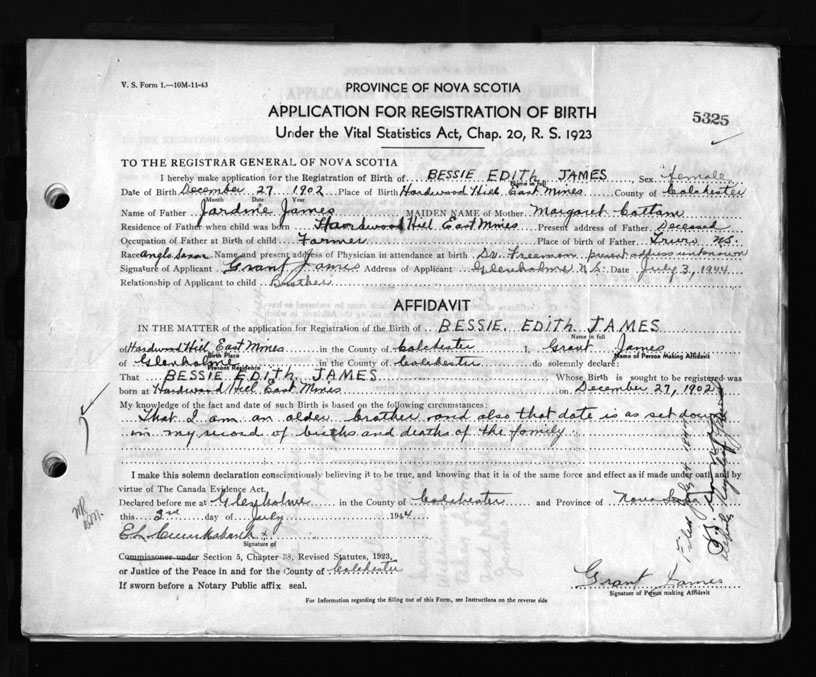 V. S. Form 1.—10M-11-43
PROVINCE OF NOVA SCOTIA
APPLICATION FOR REGISTRATION OF BIRTH
5325
Under the Vital Statistics Act, Chap. 20, R. S. 1923
TO THE REGISTRAR GENERAL OF NOVA SCOTIA
I hereby make application for the Registration of Birth of BESSIE EDITH JAMES Sex female
Name in full
Date of Birth December 27 1902 Place of Birth Hardwood Hill East Mines County of Colchester
Month Date Year
Name of Father Jardine James MAIDEN NAME of Mother Margaret Cottam
Residence of Father when child was born Hardwood Hill East Mines Present address of Father Deceased
Occupation of Father at Birth of child Farmer Place of Birth of Father Truro N.S.
Race Anglo Saxon Name and present address of Physician in attendance at birth Dr. Freeman present address unknown
Signature of Applicant Grant James Address of Applicant Glenholme N.S. Date July 3, 1944
Relationship of Applicant to child Brother
AFFIDAVIT
IN THE MATTER of the application for Registration of the Birth of BESSIE EDITH JAMES
Name in full
of Hardwood Hill East Mines in the County of Colchester I, Grant James
Birth Place Name of Person Making Affidavit
of Glenholme in the County of Colchester do solemnly declare:
Present Residence
That BESSIE EDITH JAMES Whose Birth is sought to be registered was
born at Hardwood Hill East Mines on December 27, 1902
My knowledge of the fact and date of such Birth is based on the following circumstances:
That I am an older brother and also that date is as set down
in my record of births and deaths of the family
I make this solemn declaration conscientiously believing it to be true, and knowing that it is of the same force and effect as if made under oath and by
virtue of The Canada Evidence Act.
Declared before me at Glenholme in the County of Colchester and Province of Nova Scotia
this 3rd day of July 1944
Signature of
Commissoner under Section 5, Chapter 38, Revised Statutes, 1923,
or Justice of the Peace in and for the County of Colchester
If sworn before a Notary Public affix seal.
Grant James
Signature of Person making Affidavit
For Information regarding the filling out of this Form, see Instructions on the reverse side
Filed